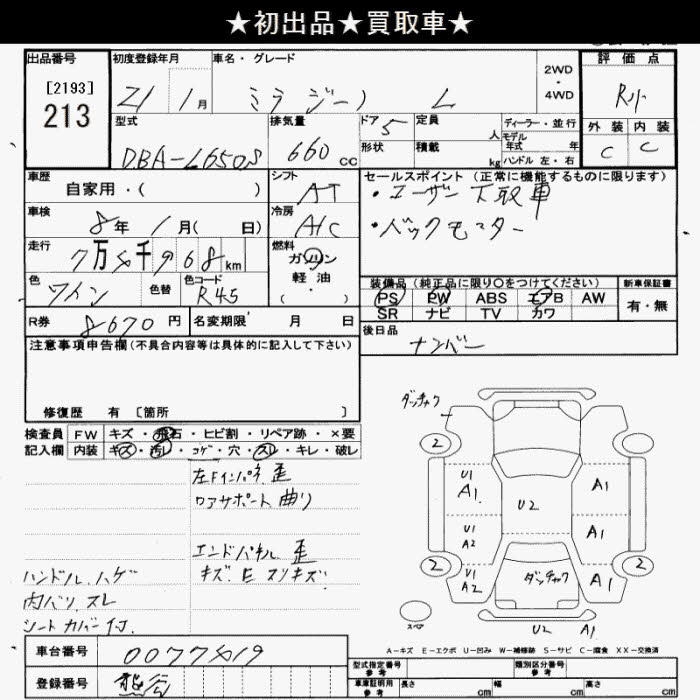 ★初出品★買取車★
出品番号
[2193]
213
初度登録年月
21 1月
車名・グレード
ミラジーノ L
2WD
・
4WD
評価点
R小
外装 内装
C C
型式
DBA-L650S
排気量
660 CC
ドア 5
形状
定員 人
積載 kg
ディーラー・並行
モデル
年式 年
ハンドル 左・右
車歴
自家用・( )
シフト
AT
セールスポイント (正常に機能するものに限ります)
・ユーザー下取車
・バックモニター
車検
8年 1月( 日)
冷房
A/C
走行
7万4千968km
燃料
ガソリン
軽油
( ・ )
色
ワイン
色替
色コード
R45
装備品 (純正品に限り○をつけてください)
PS PW ABS エアB AW
SR ナビ TV カワ
新車保証書
有・無
R券 8670円
名変期限 月 日
後日品
ナンバー
注意事項申告欄(不具合内容等は具体的に記入して下さい)
修復歴 有 [箇所 ]
検査員
記入欄
FW キズ・飛石・ヒビ割・リペア跡・×要
内装 キズ・汚レ・コゲ・穴・スレ・キレ・破レ
左Fインパネ 歪
コアサポート 曲り
エンドパネル 歪
キズ、E スリキズ
ハンドル ハゲ
内バリ スレ
シートカバー付
ダッチャク
2
2
2
U1
A1
U1
A2
U1
A2
U2
A1
A1
A1
ダッチャク
スペア
U2 A1
A-キズ E-エクボ U-凹み W-補修跡 S-サビ C-腐食 XX-交換済
車台番号
0077419
登録番号
熊谷
型式指定番号
参考
類別区分番号
参考
車庫証明用
参考
長さ cm
幅 cm
高さ cm